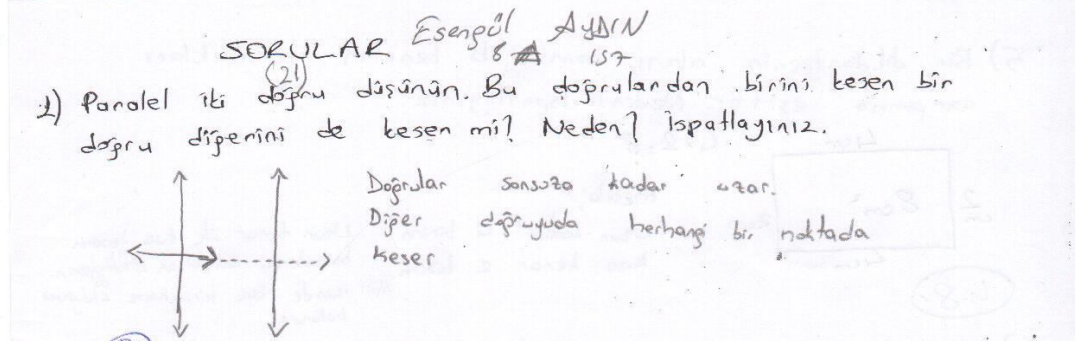 Esengül AYDIN
SORULAR 8A 157
(21)
1) Paralel iki doğru düşünün. Bu doğrulardan birini kesen bir
doğru diğerini de keser mi? Neden? İspatlayınız.
Doğrular sonsuza kadar uzar.
Diğer doğruyuda herhangi bir noktada
keser